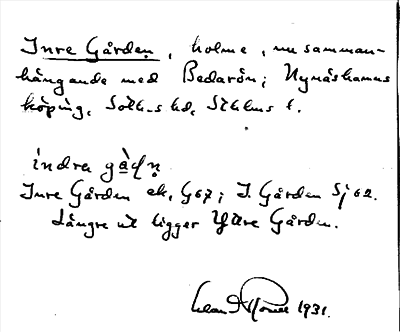 Inre Gården, holme, nu samman-
hängande med Bedarön; Nynäshamns
köping, Soth-s hd, Sthlms l.
indra gàḍṇ
Inre Gården ek. G67; I. Gården Sj 62.
Längre ut ligger Yttre Gården.
1931.